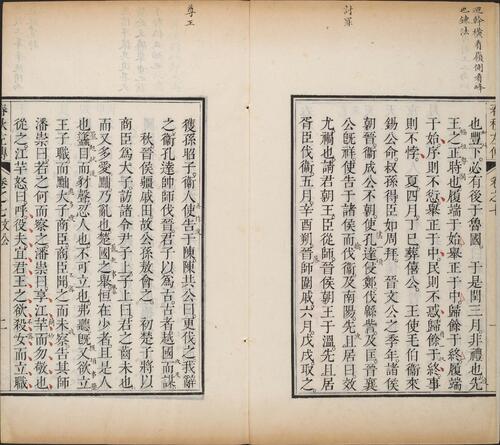 逆幹橫看嶺側看峰
也錬法
討罪
也豐下必有後于魯國　于是閏三月非禮也先
王之正時也履端于始舉正于中歸餘于終履端
于始序則不愆舉正于中民則不惑歸餘于終事
則不悖　夏四月丁巳葬僖公　王使毛伯衛來
錫公命叔孫得臣如周拜　晉文公之季年諸侯
朝晉衛成公不朝使孔達侵鄭伐緜訾及匡晉襄
公既祥使告于諸侯而伐衛及南陽先且居曰效
尤禍也請君朝王臣從師晉侯朝王于溫先且居
胥臣伐衛五月辛酉朔晉師圍戚六月戊戌取之
尊王
獲孫昭子衛人使告于陳陳共公曰更伐之我辭
之衛孔達帥師伐晉君子以爲古古者越國而謀
秋晉侯疆戚田故公孫敖會之　初楚子將以
商臣爲大子訪諸令尹子上子上曰君之齒未也
而又多愛黜乃亂也楚國之舉恒在少者且是人
也蠭目而豺聲忍人也不可立也弗聽既又欲立
王子職而黜大子商臣商臣聞之而未察告其師
潘崇曰若之何而察之潘崇曰享江羋而勿敬也
從之江羋怒曰呼役夫宜君王之欲殺女而立職
春秋左傳　卷之七文公　二